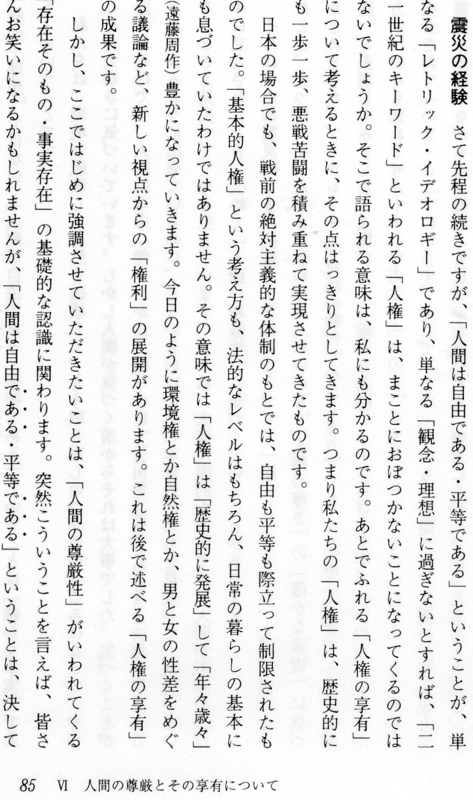 震災の経験　さて先程の続きですが、「人間は自由である・平等である」ということが、単
なる「レトリック・イデオロギー」であり、単なる「観念・理想」に過ぎないとすれば、「二
一世紀のキーワード」といわれる「人権」は、まことにおぼつかないことになってくるのでは
ないでしょうか。そこで語られる意味は、私にも分かるのです。あとでふれる「人権の享有」
について考えるときに、その点はっきりとしてきます。つまり私たちの「人権」は、歴史的に
も一歩一歩、悪戦苦闘を積み重ねて実現させてきたものです。
日本の場合でも、戦前の絶対主義的な体制のもとでは、自由も平等も際立って制限されたも
のでした。「基本的人権」という考え方も、法的なレベルはもちろん、日常の暮らしの基本に
も息づいていたわけではありません。その意味では「人権」は「歴史的に発展」して「年々歳々」
（遠藤周作）豊かになっていきます。今日のように環境権とか自然権とか、男と女の性差をめぐ
る議論など、新しい視点からの「権利」の展開があります。これは後で述べる「人権の享有」
の成果です。
しかし、ここではじめに強調させていただきたいことは、「人間の尊厳性」がいわれてくる
「存在そのもの・事実存在」の基礎的な認識に関わります。突然こういうことを言えば、皆さ
んお笑いになるかもしれませんが、「人間は自由である・平等である」ということは、決して
85　Ⅵ　人間の尊厳とその享有について